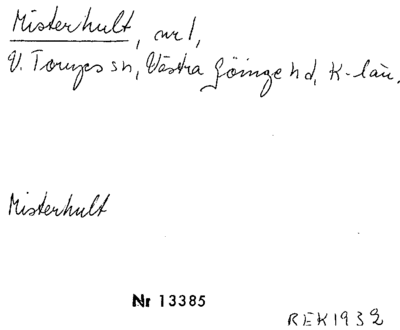 Misterhult, nr 1,
V. Torups sn, Västra Göinge hd, K-län.
Misterhult
Nr 13385
REK1932